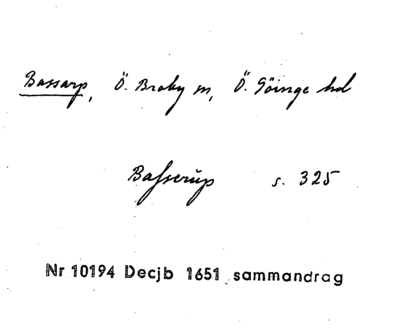 Bassarp, Ö. Broby sn, Ö. Göinge hd
Baſserup s. 325
Nr 10194 Decjb 1651 sammandrag